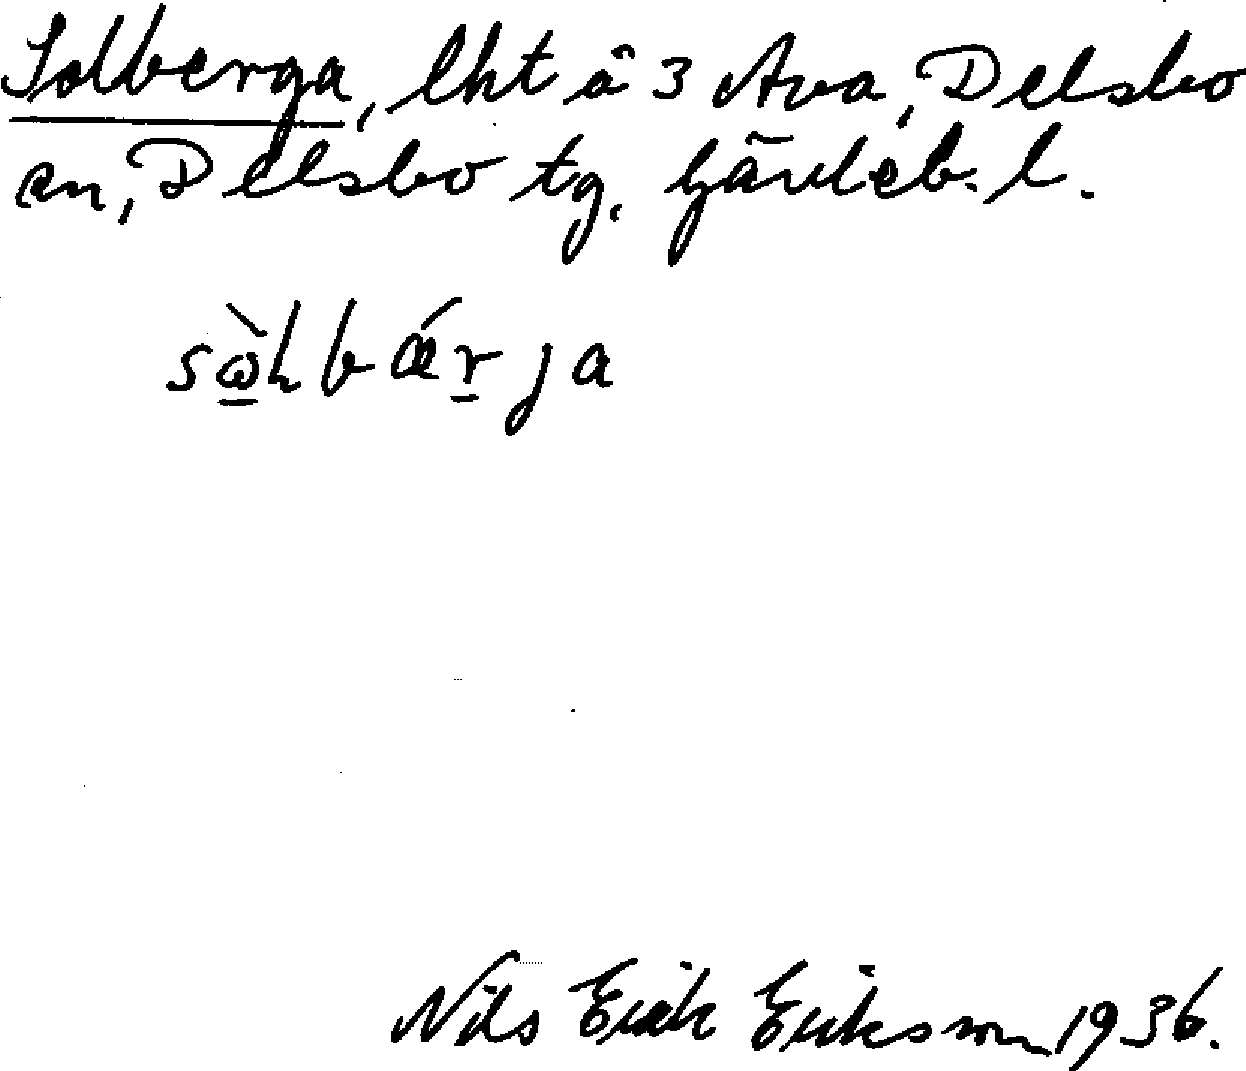 Solberga, lht å 3 Ava, Delsbo
sn, Delsbo tg. Gävleb. l.
Nils Erik Eriksson 1936.